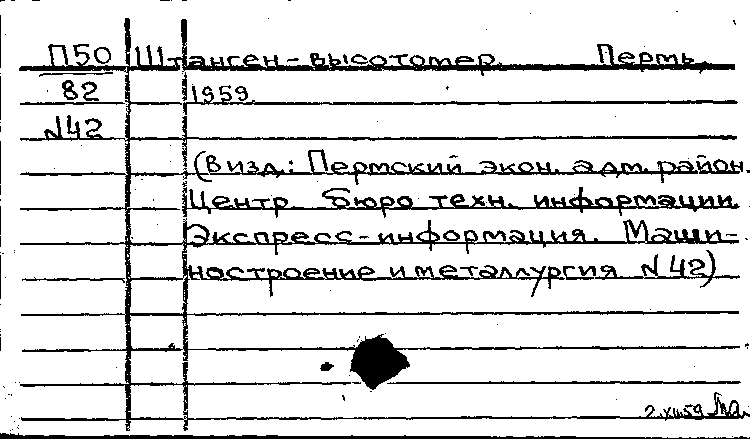 П50 Штанген-высотомер. Пермь,
82 1959.
N42
(В изд.: Пермский экон. адм. район.
Центр. бюро техн. информации.
Экспресс-информация. Маши-
ностроение и металлургия. N 42)
2.XII.59